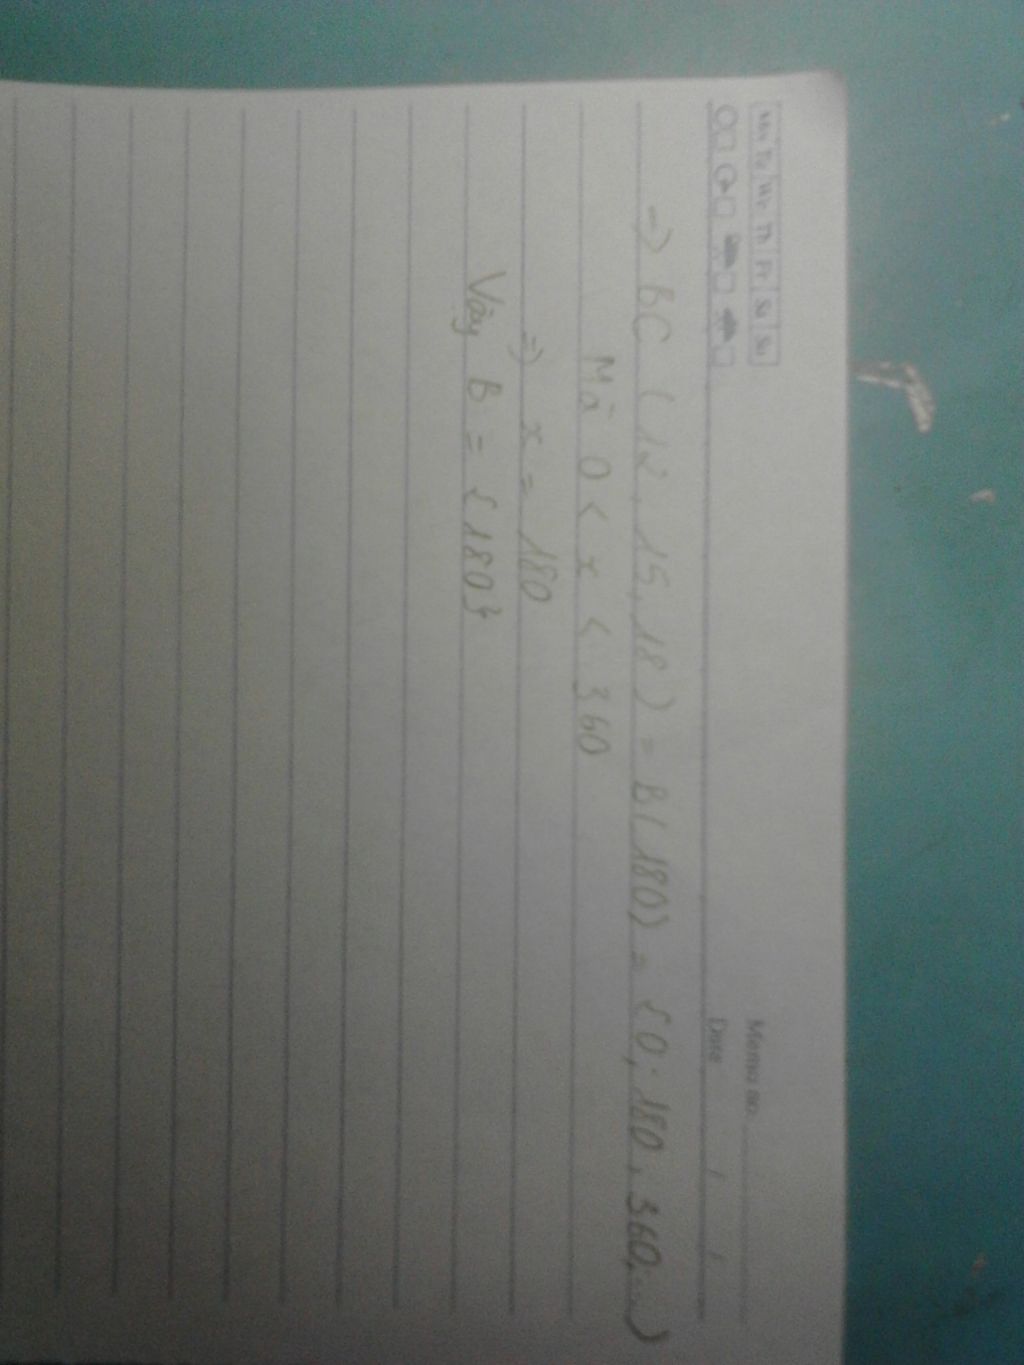 Mo Tu We Th Fr Sa Su
Memo no.
Date / /
-> BC (12, 15, 18) = B(180) = {0; 180; 360;...)
Mà 0 < x < 360
=> x = 180
Vậy B = {180}